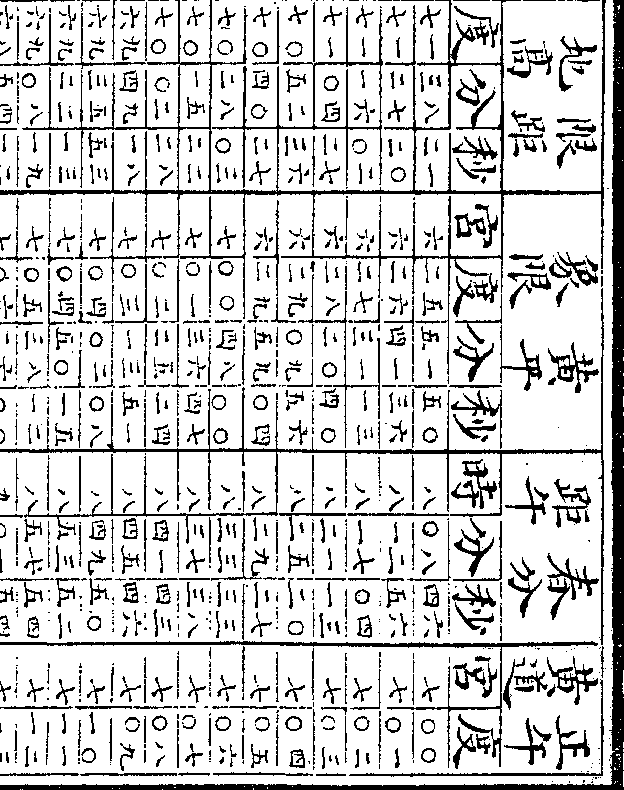 地高 限距 象限 黃平 距午 春分 黃道 正午
度 分 秒 宮 度 分 秒 時 分 秒 宮 度
七一 三八 二一 六 二五 五一 五〇 八 〇八 四六 七 〇〇
七一 二七 二〇 六 二六 四一 三六 八 一二 五六 七 〇一
七一 一六 〇二 六 二七 三一 一三 八 一七 〇四 七 〇二
七一 〇四 二七 六 二八 二〇 四〇 八 二一 一三 七 〇三
七〇 五二 三六 六 二九 〇九 五六 八 二五 二〇 七 〇四
七〇 四〇 二七 六 二九 五九 〇四 八 二九 二七 七 〇五
七〇 二八 〇三 七 〇〇 四八 〇〇 八 三三 三三 七 〇六
七〇 一五 二二 七 〇一 三六 四七 八 三七 三八 七 〇七
七〇 〇二 二八 七 〇二 二五 二四 八 四一 四三 七 〇八
六九 四九 一八 七 〇三 一三 五一 八 四五 四六 七 〇九
六九 三五 五三 七 〇四 〇二 〇八 八 四九 五〇 七 一〇
六九 二二 一三 七 〇四 五〇 一五 八 五三 五二 七 一一
六九 〇八 一九 七 〇五 三八 一二 八 五七 五四 七 一二